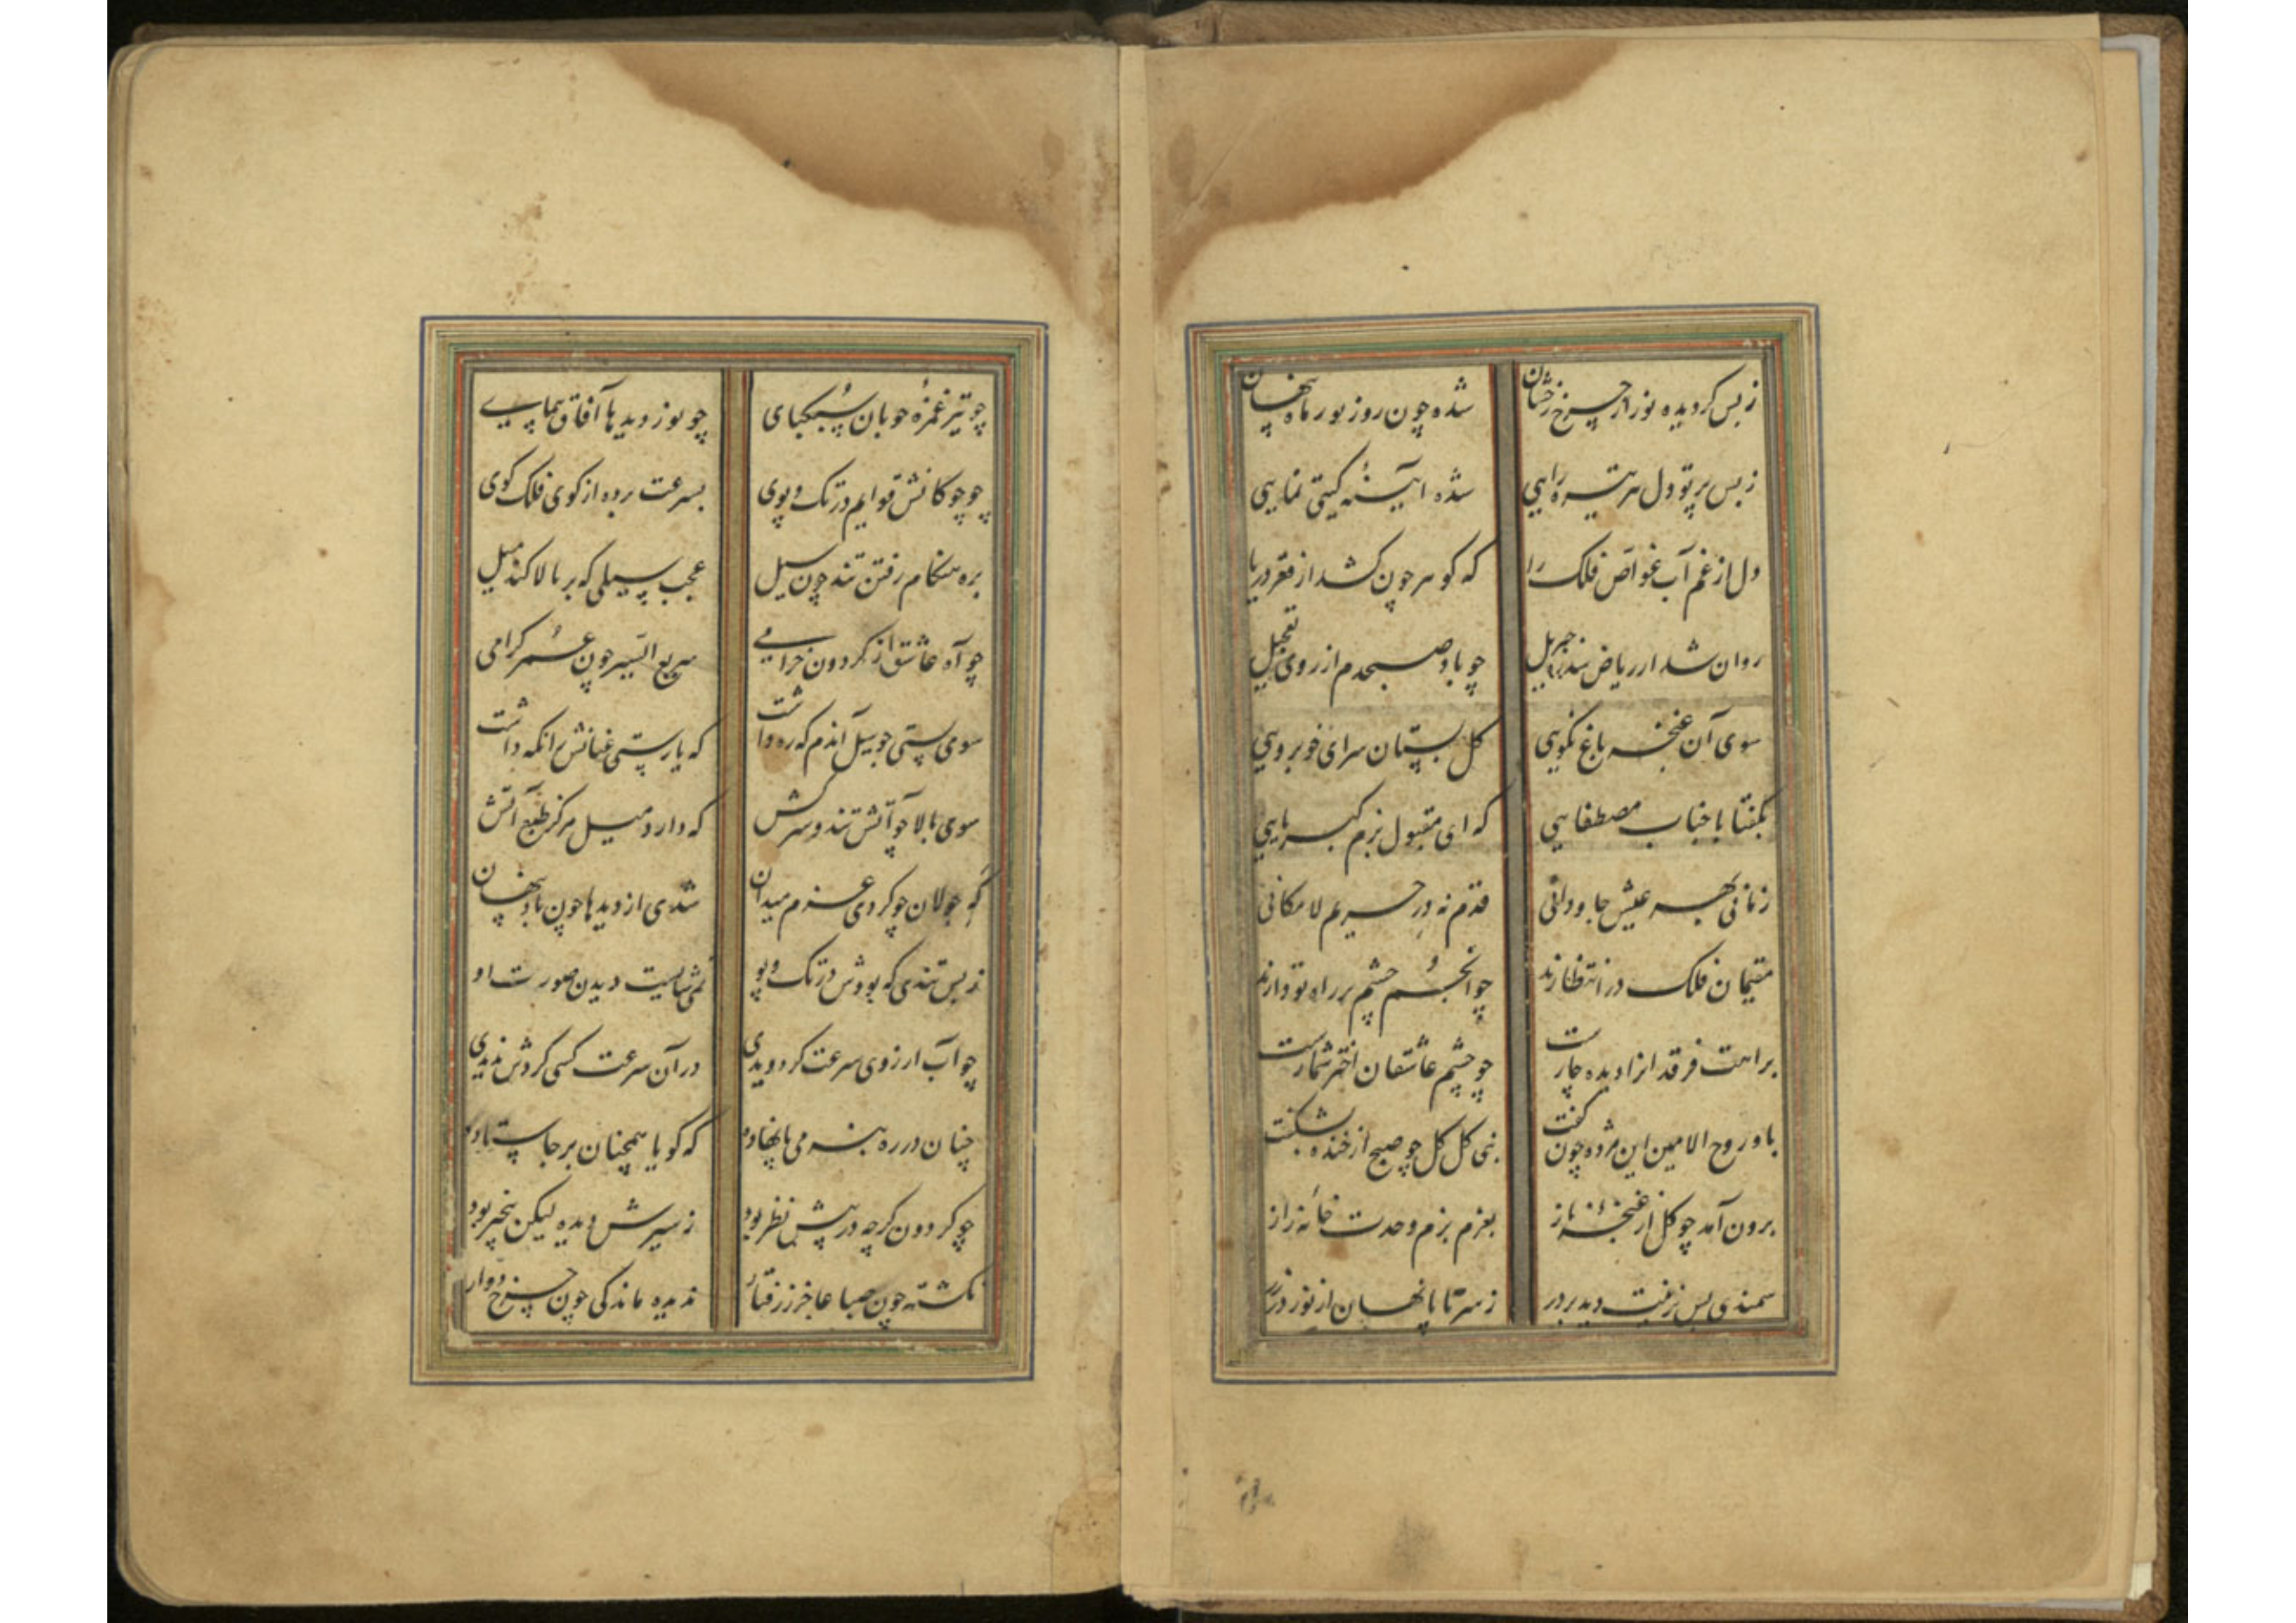 ز بس گردیده نور از چرخ رخشان شده چون روز نور ماه پنهان
ز بس پرتو دل هر تیره رایی شده آیینهٔ گیتی نمایی
دل از غم آب غواص فلک را که گوهر چون کشد از قعر دریا
روان شد از ریاض سدره جبریل چو باد صبحدم از روی تعجیل
سوی آن غنچه باغ نکویی گل بستان سرای خوبرویی
بگفتا با جناب مصطفایی که ای مقبول بزم کبریایی
زمانی بهر عیش جاودانی قدم نه در حریم لامکانی
مقیمان فلک در انتظارند چو انجم چشم بر راه تو دارند
براهت فرقدانرا دیده چارست چو چشم عاشقان اختر شمارست
باو روح الامین این مژده چون گفت نبی گل گل چو صبح از خنده بشکفت
برون آمد چو گل از غنچهٔ ناز بعزم بزم وحدت خانهٔ راز
سمندی بس زینت دید بر در ز سر تا پا نهان از نور در
چو تیر غمزهٔ خوبان سبکپای چو نور دیدها آفاق پیمای
چو چوگانش قوایم در تک و پوی بسرعت برده از گوی فلک گوی
بره هنگام رفتن تند چون سیل عجب سیلی که بر بالا کند میل
چو آه عاشق از گردون خرامی سریع السیر چون عمر گرامی
سوی پستی چو سیل آندم که ره داشت که یارستی عنانش را نگه داشت
سوی بالا چو آتش تند و سرکش که دارد میل مرکز طبع آتش
گه جولان چو کردی عزم میدان شدی از دیدها چون باد پنهان
ز بس تندی که بودش در تک و پو نمی شایست دیدن صورت او
چو آب از روی سرعت گر دویدی در آن سرعت کسی گردش ندیدی
چنان در ره بنرمی پا نهاده که گویا همچنان بر جا ستاده
چو گردون گرچه در پیش نظر بود ز سیرش دیده لیکن بیخبر بود
نگشته چون صبا عاجز ز رفتار ندیده ماندگی چون چرخ دوار